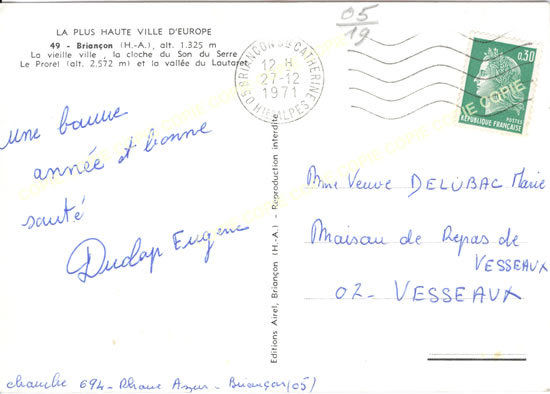 LA PLUS HAUTE VILLE D'EUROPE
49 - Briançon (H.-A.), alt. 1.325 m
La vieille ville, la cloche du Son du Serre
Le Prorel (alt. 2.572 m) et la vallée du Lautaret
05
19
BRIANÇON STE CATHERINE
12 H
27-12
1971
05 HTES ALPES
0,30
POSTES
REPUBLIQUE FRANÇAISE
COPIE COPIE COPIE COPIE COPIE
Une bonne
année et bonne
santé
Duclap Eugene
Editions Airel, Briançon (H.-A.) - Reproduction interdite
Mme Veuve DELUBAC Marie
Maison de Repas de
VESSEAUX
02 - VESSEAUX
chambre 694 - Rhone Azur - Briançon (05)